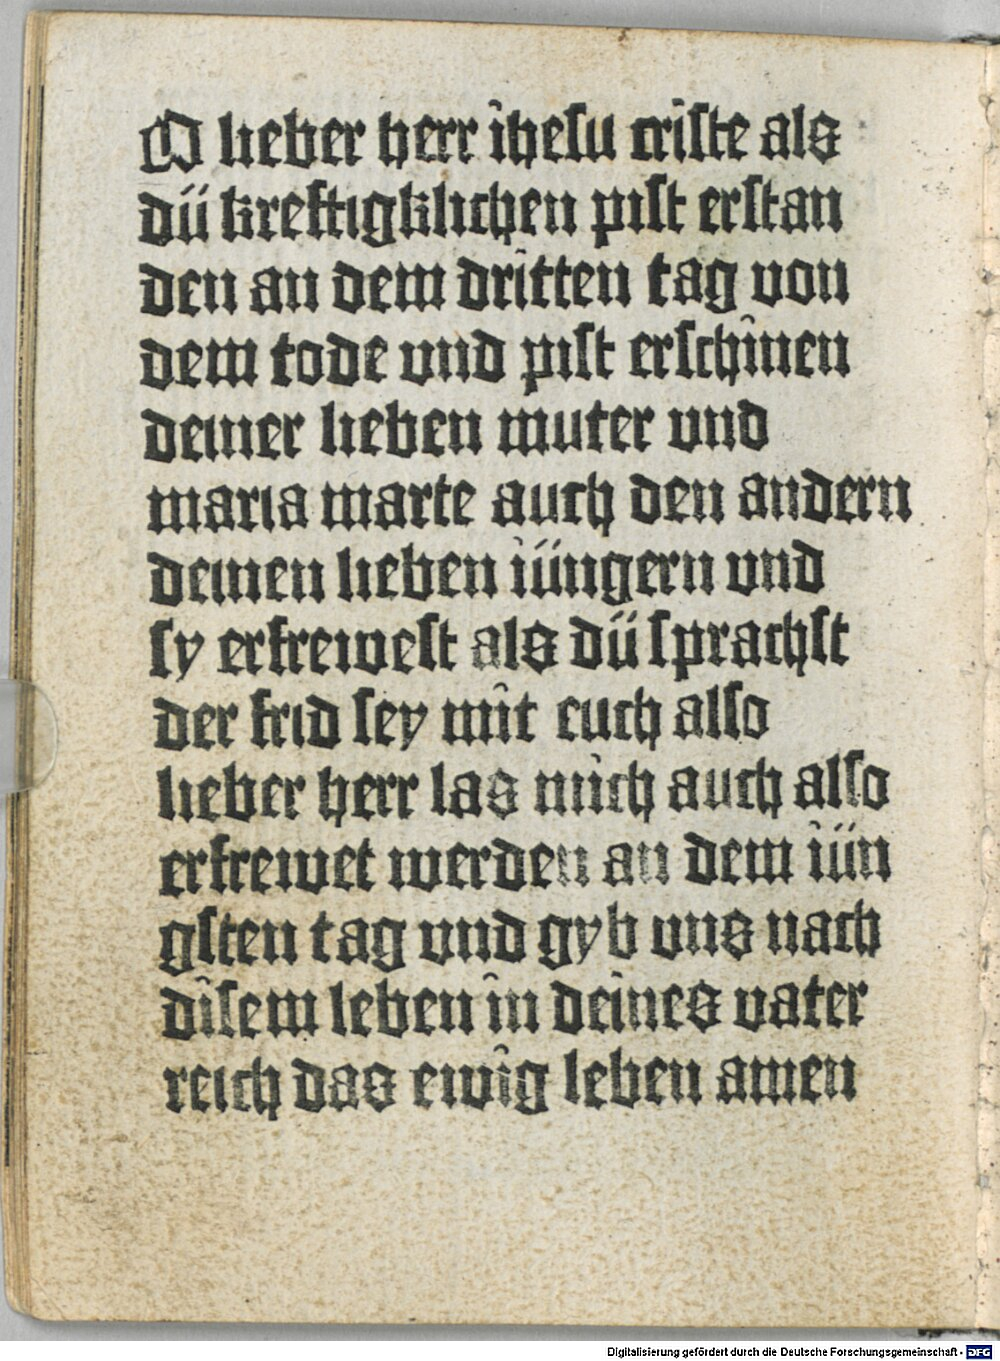 O lieber herr ihesu criste als
dü kreftigklichen pist erstan
den an dem dritten tag von
dem tode vnd pist erschinen
deiner lieben muter vnd
maria marte auch den andern
deinen lieben iüngern vnd
sy erfrewest als dü sprachst
der frid sey mit euch also
lieber herr las mich auch also
erfrewet werden an dem iün
gsten tag vnd gyb vns nach
disem leben in deines vater
reich das ewig leben amen
Digitalisierung gefördert durch die Deutsche Forschungsgemeinschaft - DFG